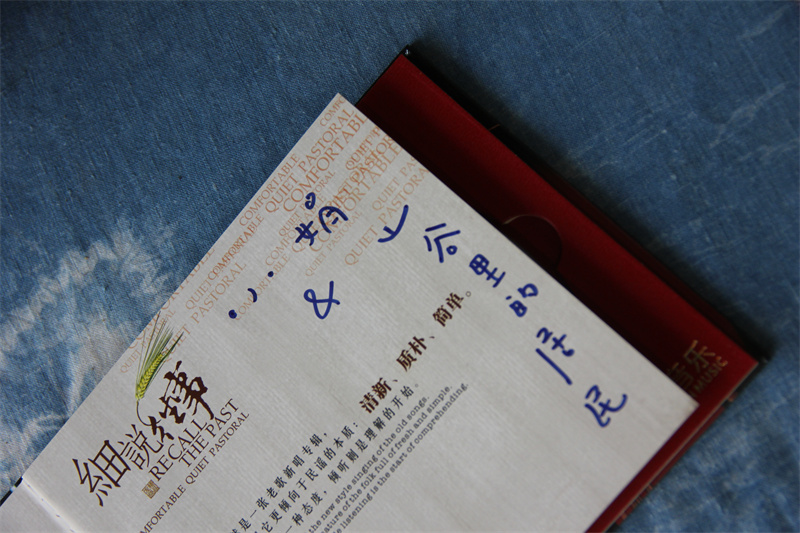 COMFORTABLE
QUIET PASTORAL
COMFORTABLE
QUIET PASTORAL
谷里的居民
&
細說往事
RECALL
THE PAST
COMFORTABLE QUIET PASTORAL
是一张老歌新唱专辑,
它更倾向于民谣的本质:清新、质朴、简单。
一种态度,倾听则是理解的开始。
the new style singing of the old songs.
nature of the folk full of fresh and simple.
listening is the start of comprehending.
乐
MUSIC